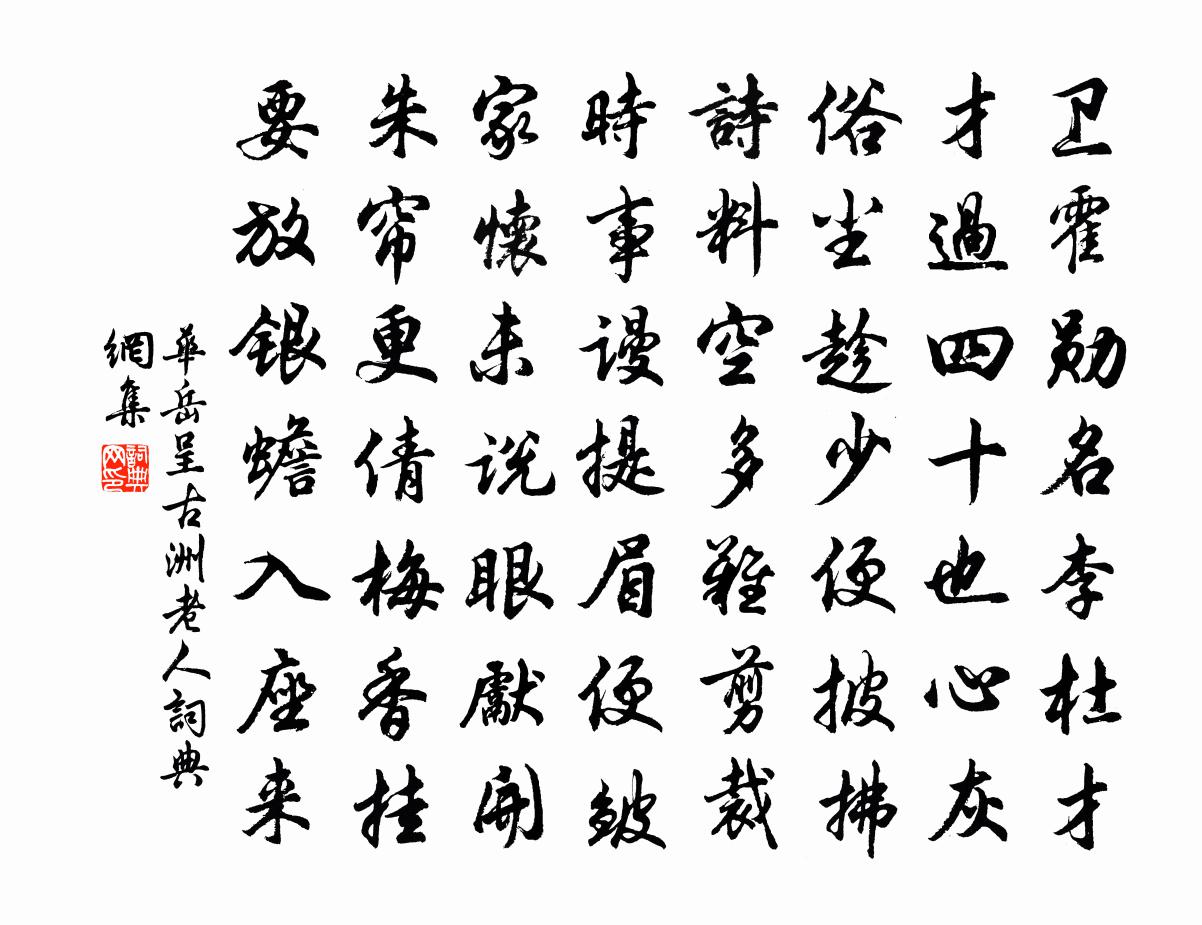 卫霍勋名李杜才
才過四十也心灰
俗尘趁少便披拂
詩料空多難剪裁
時事谩提眉便皱
家懷未説眼厭開
朱帘更倩梅香挂
要放银蟾入座来
華岳呈古洲老人詞典
網集
詞典网印